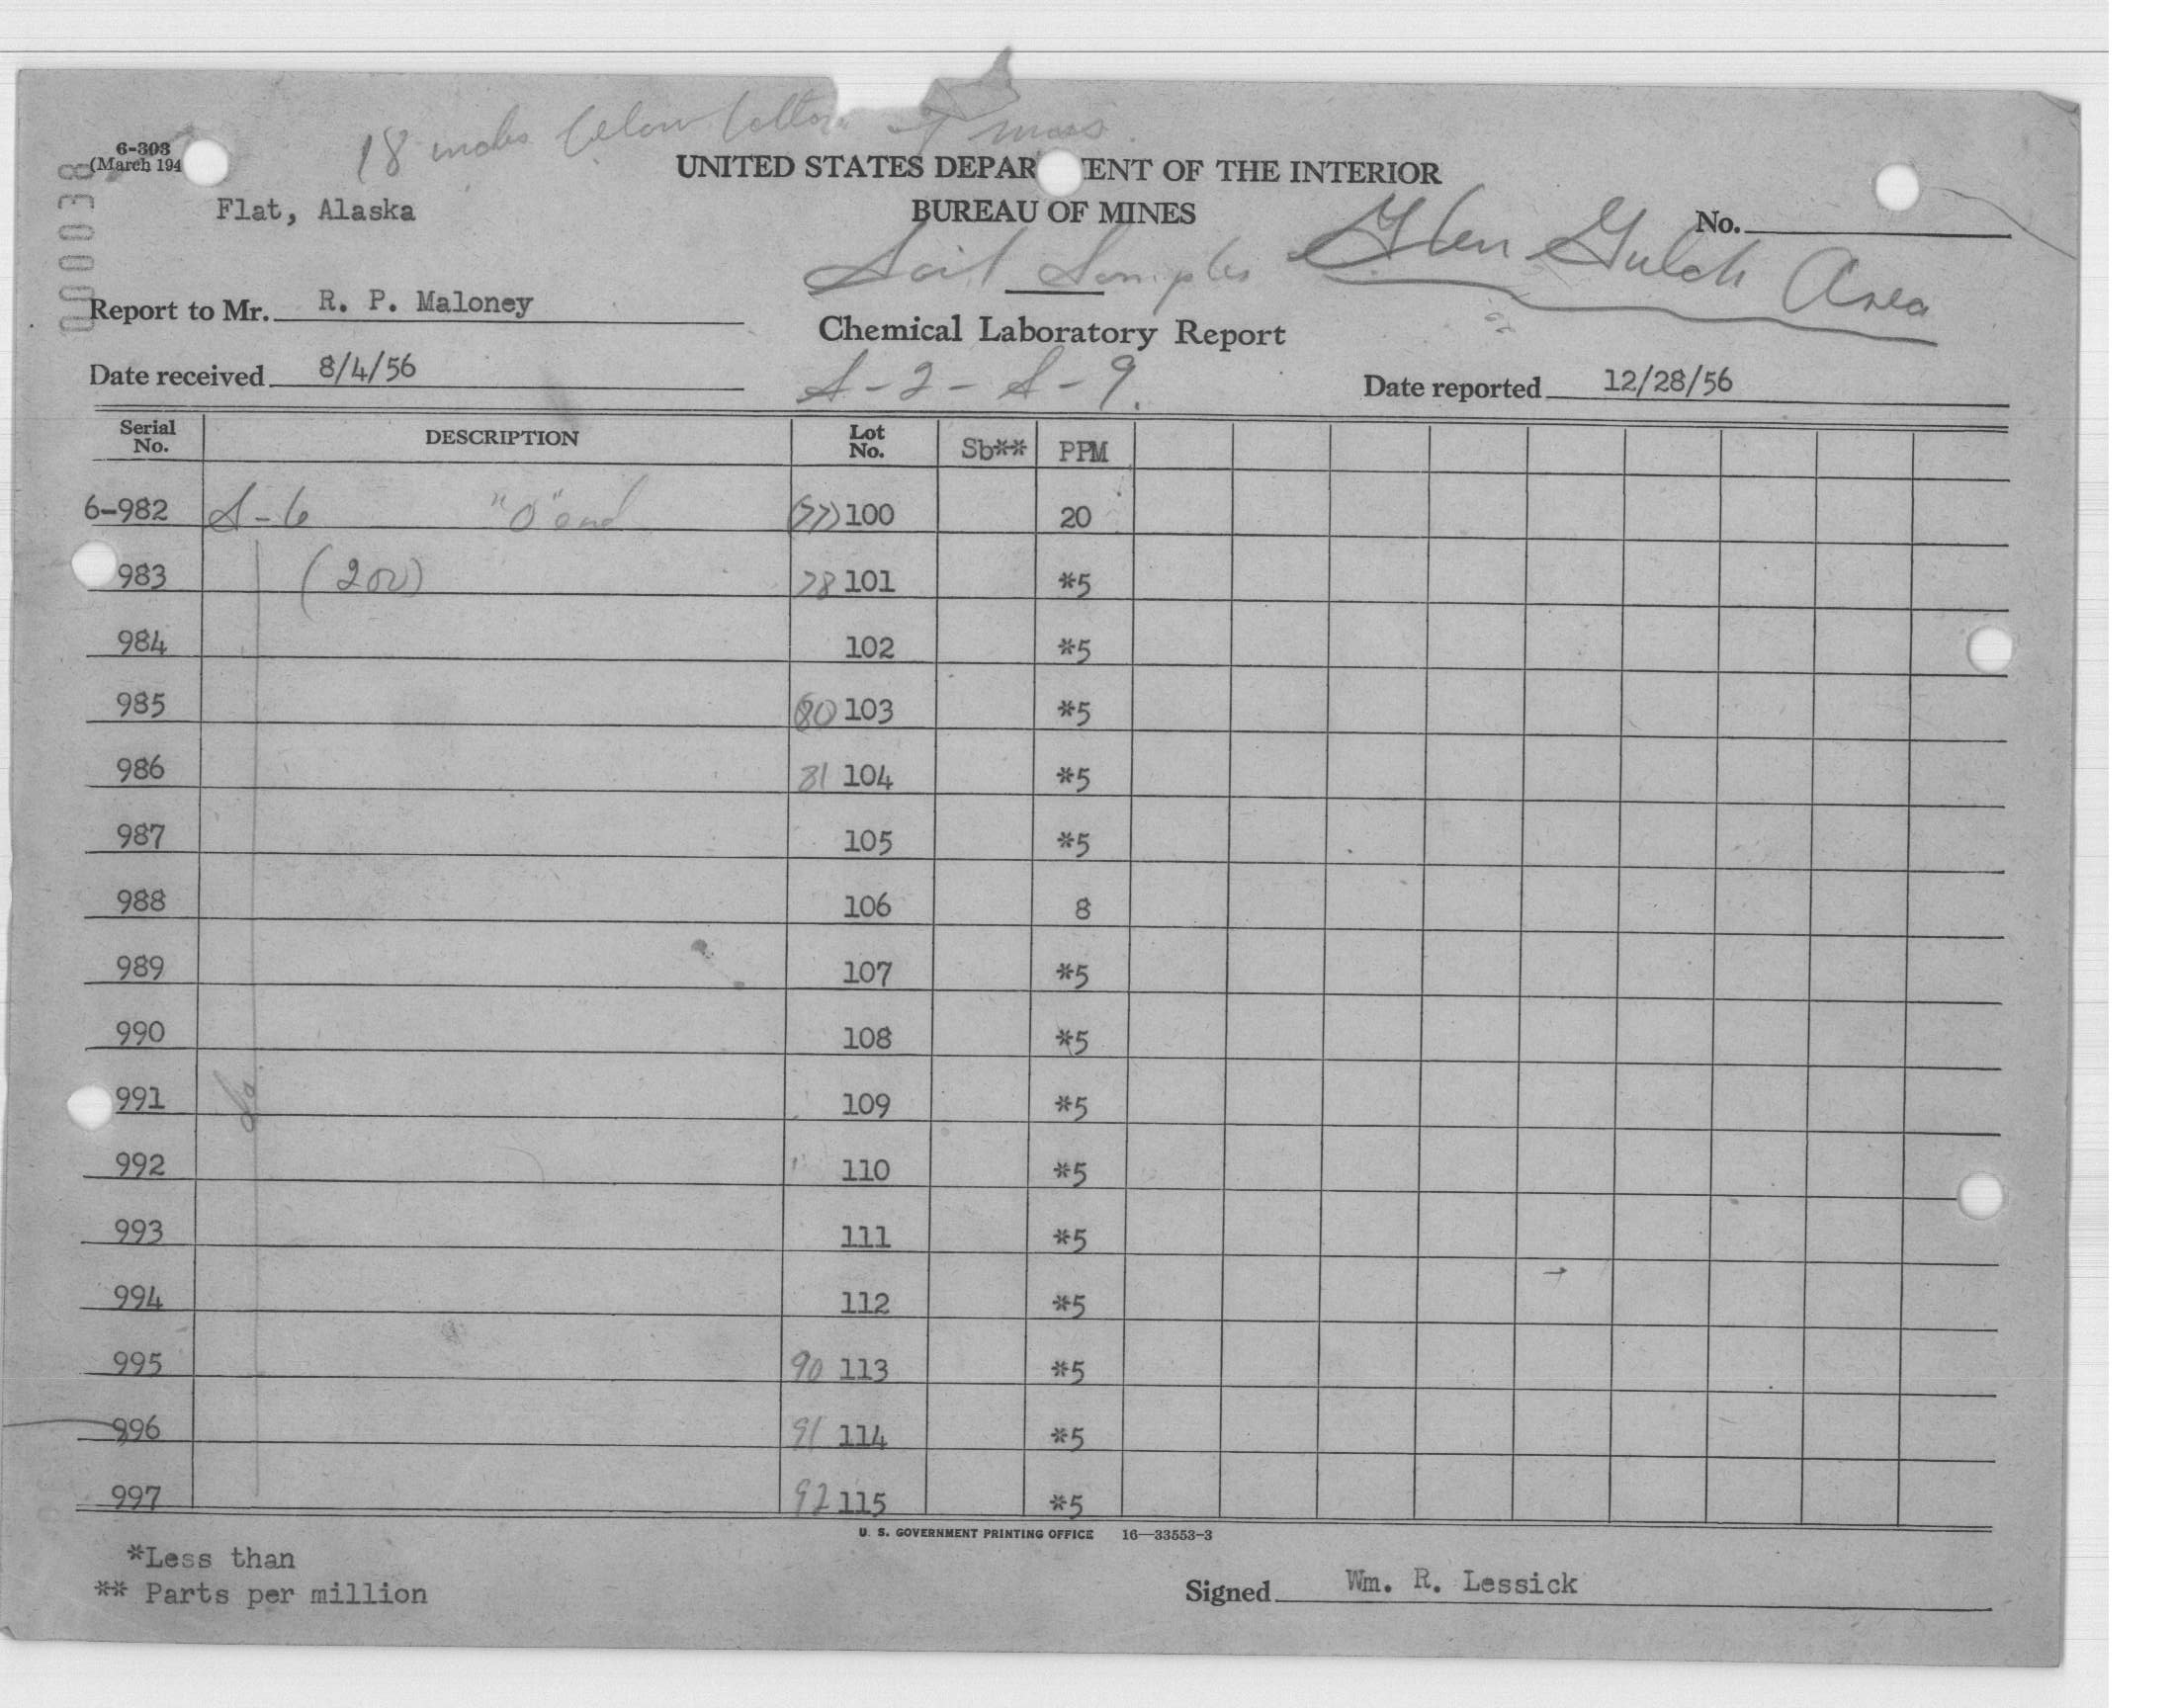 18 inches below bottom of moss.
6-303
(March 194
000038
UNITED STATES DEPAR ENT OF THE INTERIOR
Flat, Alaska
BUREAU OF MINES
No.
Soil Samples Glen Gulch Area
Report to Mr. R. P. Maloney
Chemical Laboratory Report
Date received 8/4/56
S-2 - S-9.
Date reported 12/28/56
Serial No. DESCRIPTION Lot No. Sb** PPM
6-982 S-6 "0" end (77) 100 20
983 (200) 78 101 *5
984 102 *5
985 80 103 *5
986 81 104 *5
987 105 *5
988 106 8
989 107 *5
990 108 *5
991 do. 109 *5
992 110 *5
993 111 *5
994 112 *5
995 90 113 *5
996 91 114 *5
997 92 115 *5
U. S. GOVERNMENT PRINTING OFFICE 16—33553-3
*Less than
** Parts per million
Signed Wm. R. Lessick